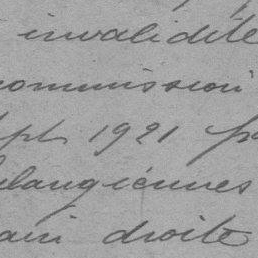 invalidité
commission
sept 1921 p
phalangiennes
main droite